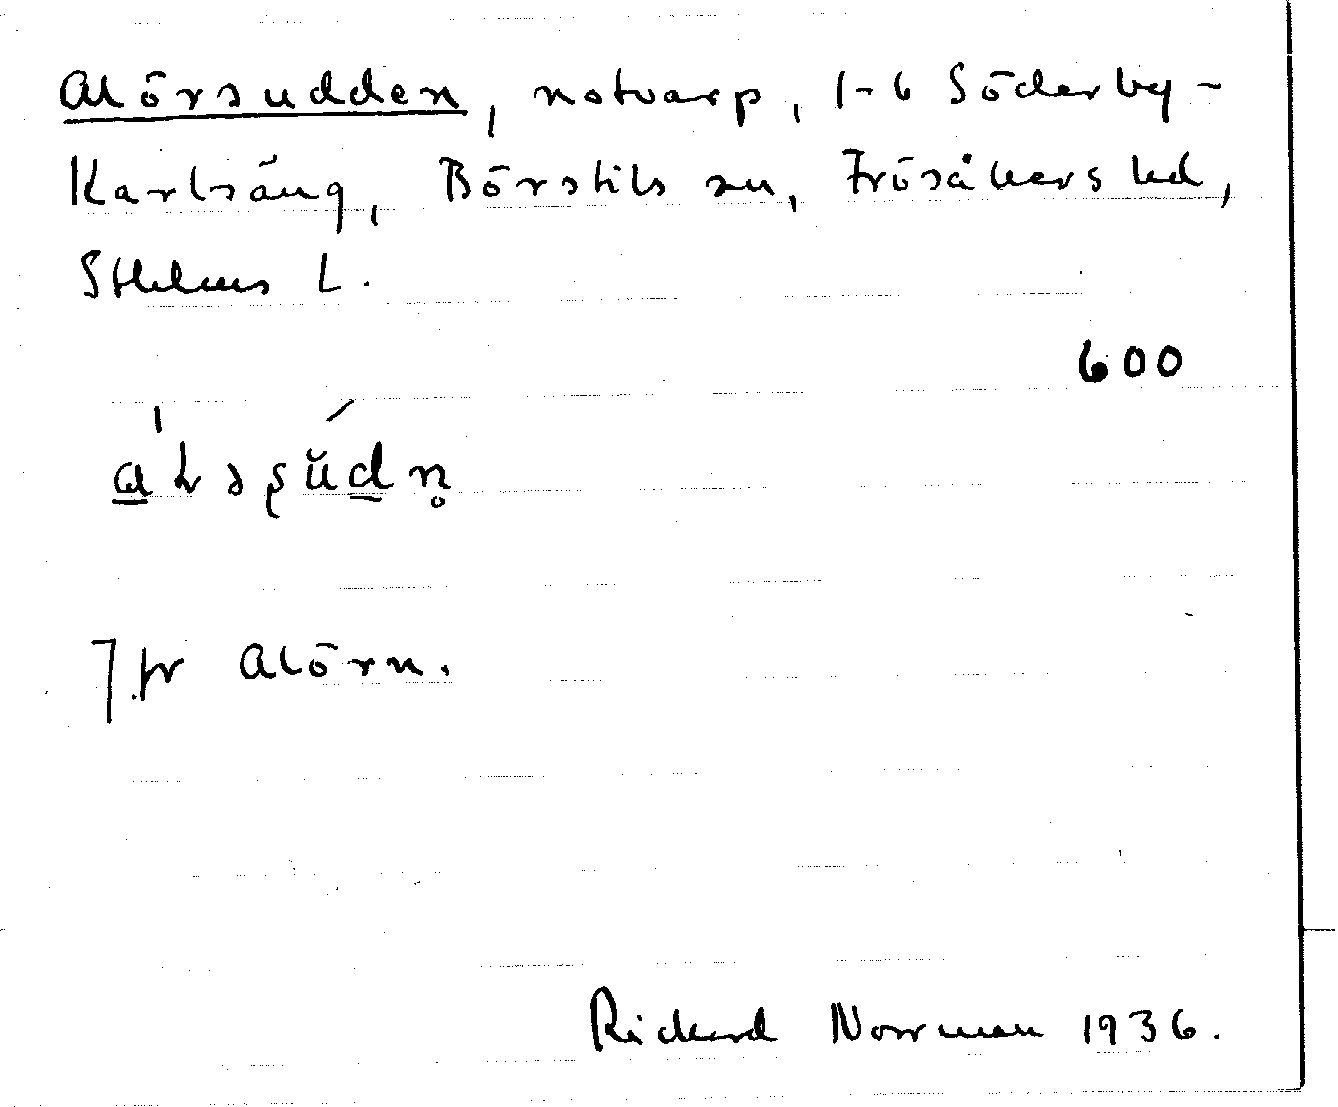 Alörsudden, notvarp, 1-6 Söderby-
Karlsäng, Börstils sn, Frösåkers hd,
Sthlms L.
600
Jfr Alörn.
Rickard Norrman 1936.